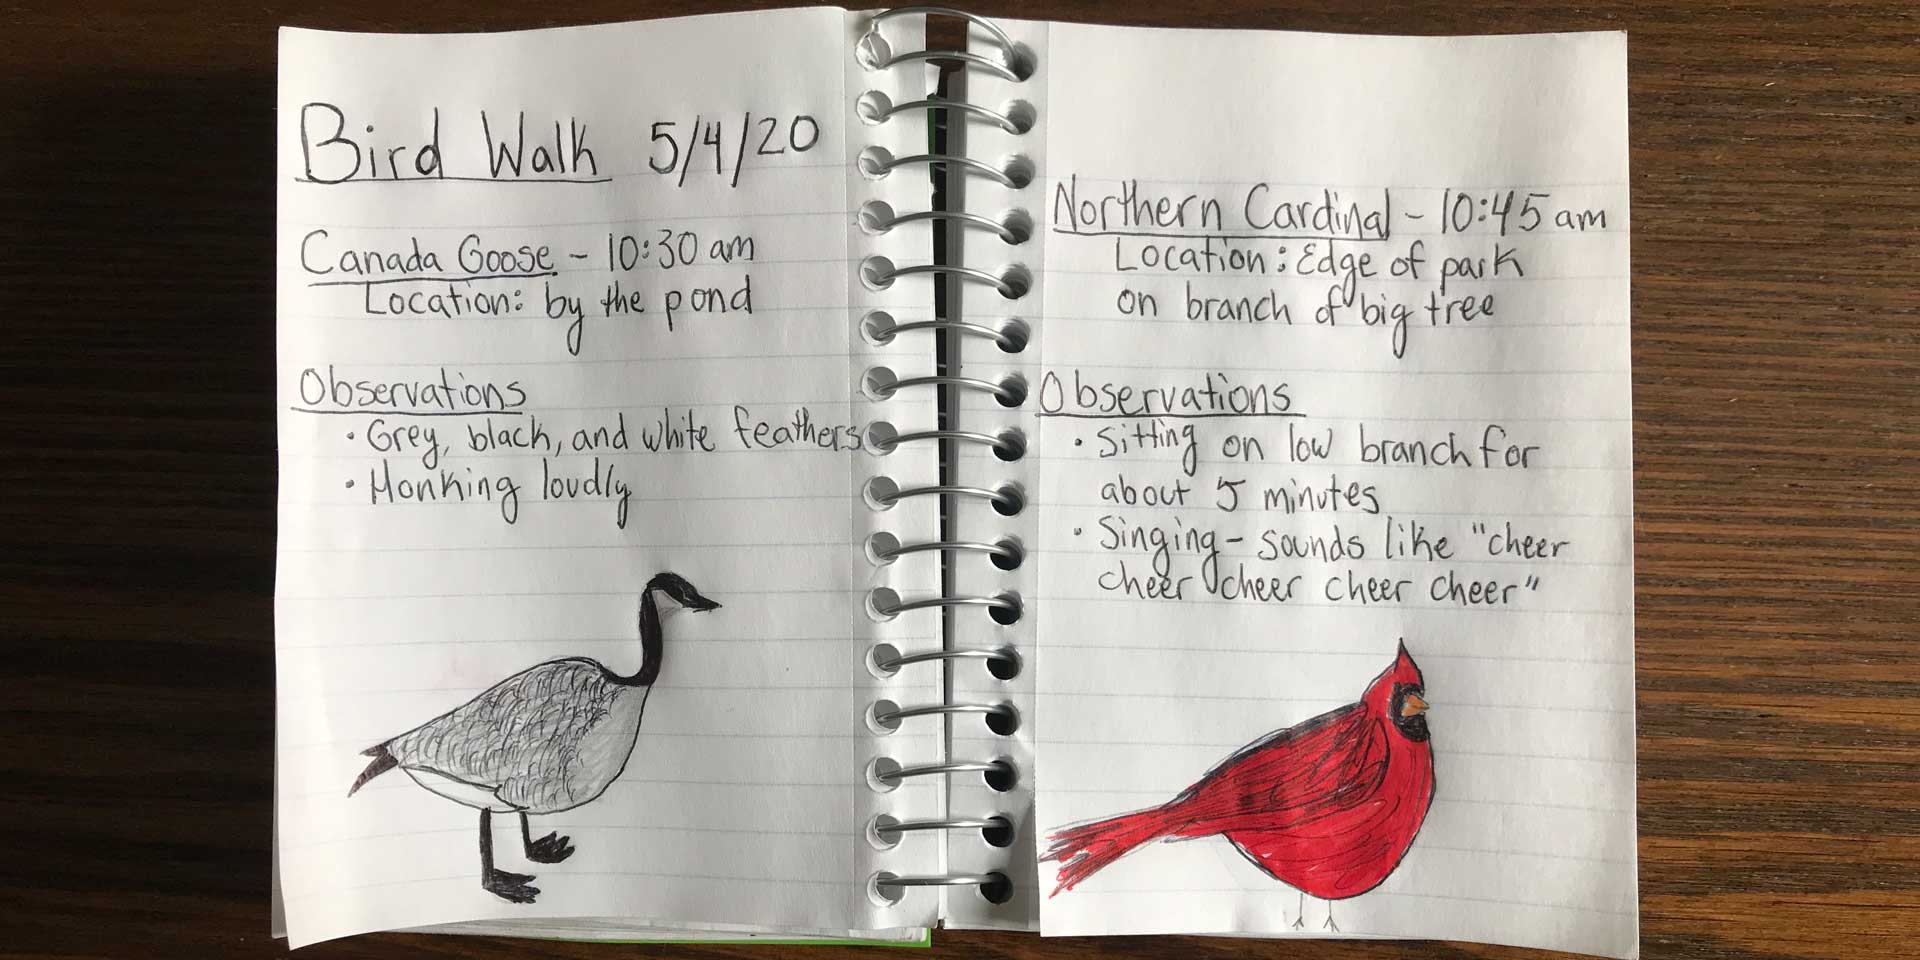 Bird Walk 5/4/20
Canada Goose - 10:30 am
Location: by the pond
Observations
• Grey, black, and white feathers
• Honking loudly
Northern Cardinal - 10:45 am
Location: Edge of park
on branch of big tree
Observations
• Sitting on low branch for
about 5 minutes
• Singing - sounds like "cheer
cheer cheer cheer cheer"